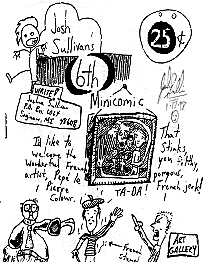 Josh
Sullivan's
6th
Minicomic
25¢
WRITE!
Joshua Sullivan
P.O. Box
I'd like to
welcome the
wonderful French
artist, Pepé le
Pierre
Colour.
TA-DA!
That
Stinks,
you filthy,
gorgous,
French jerk!
French
ART
GALLERY